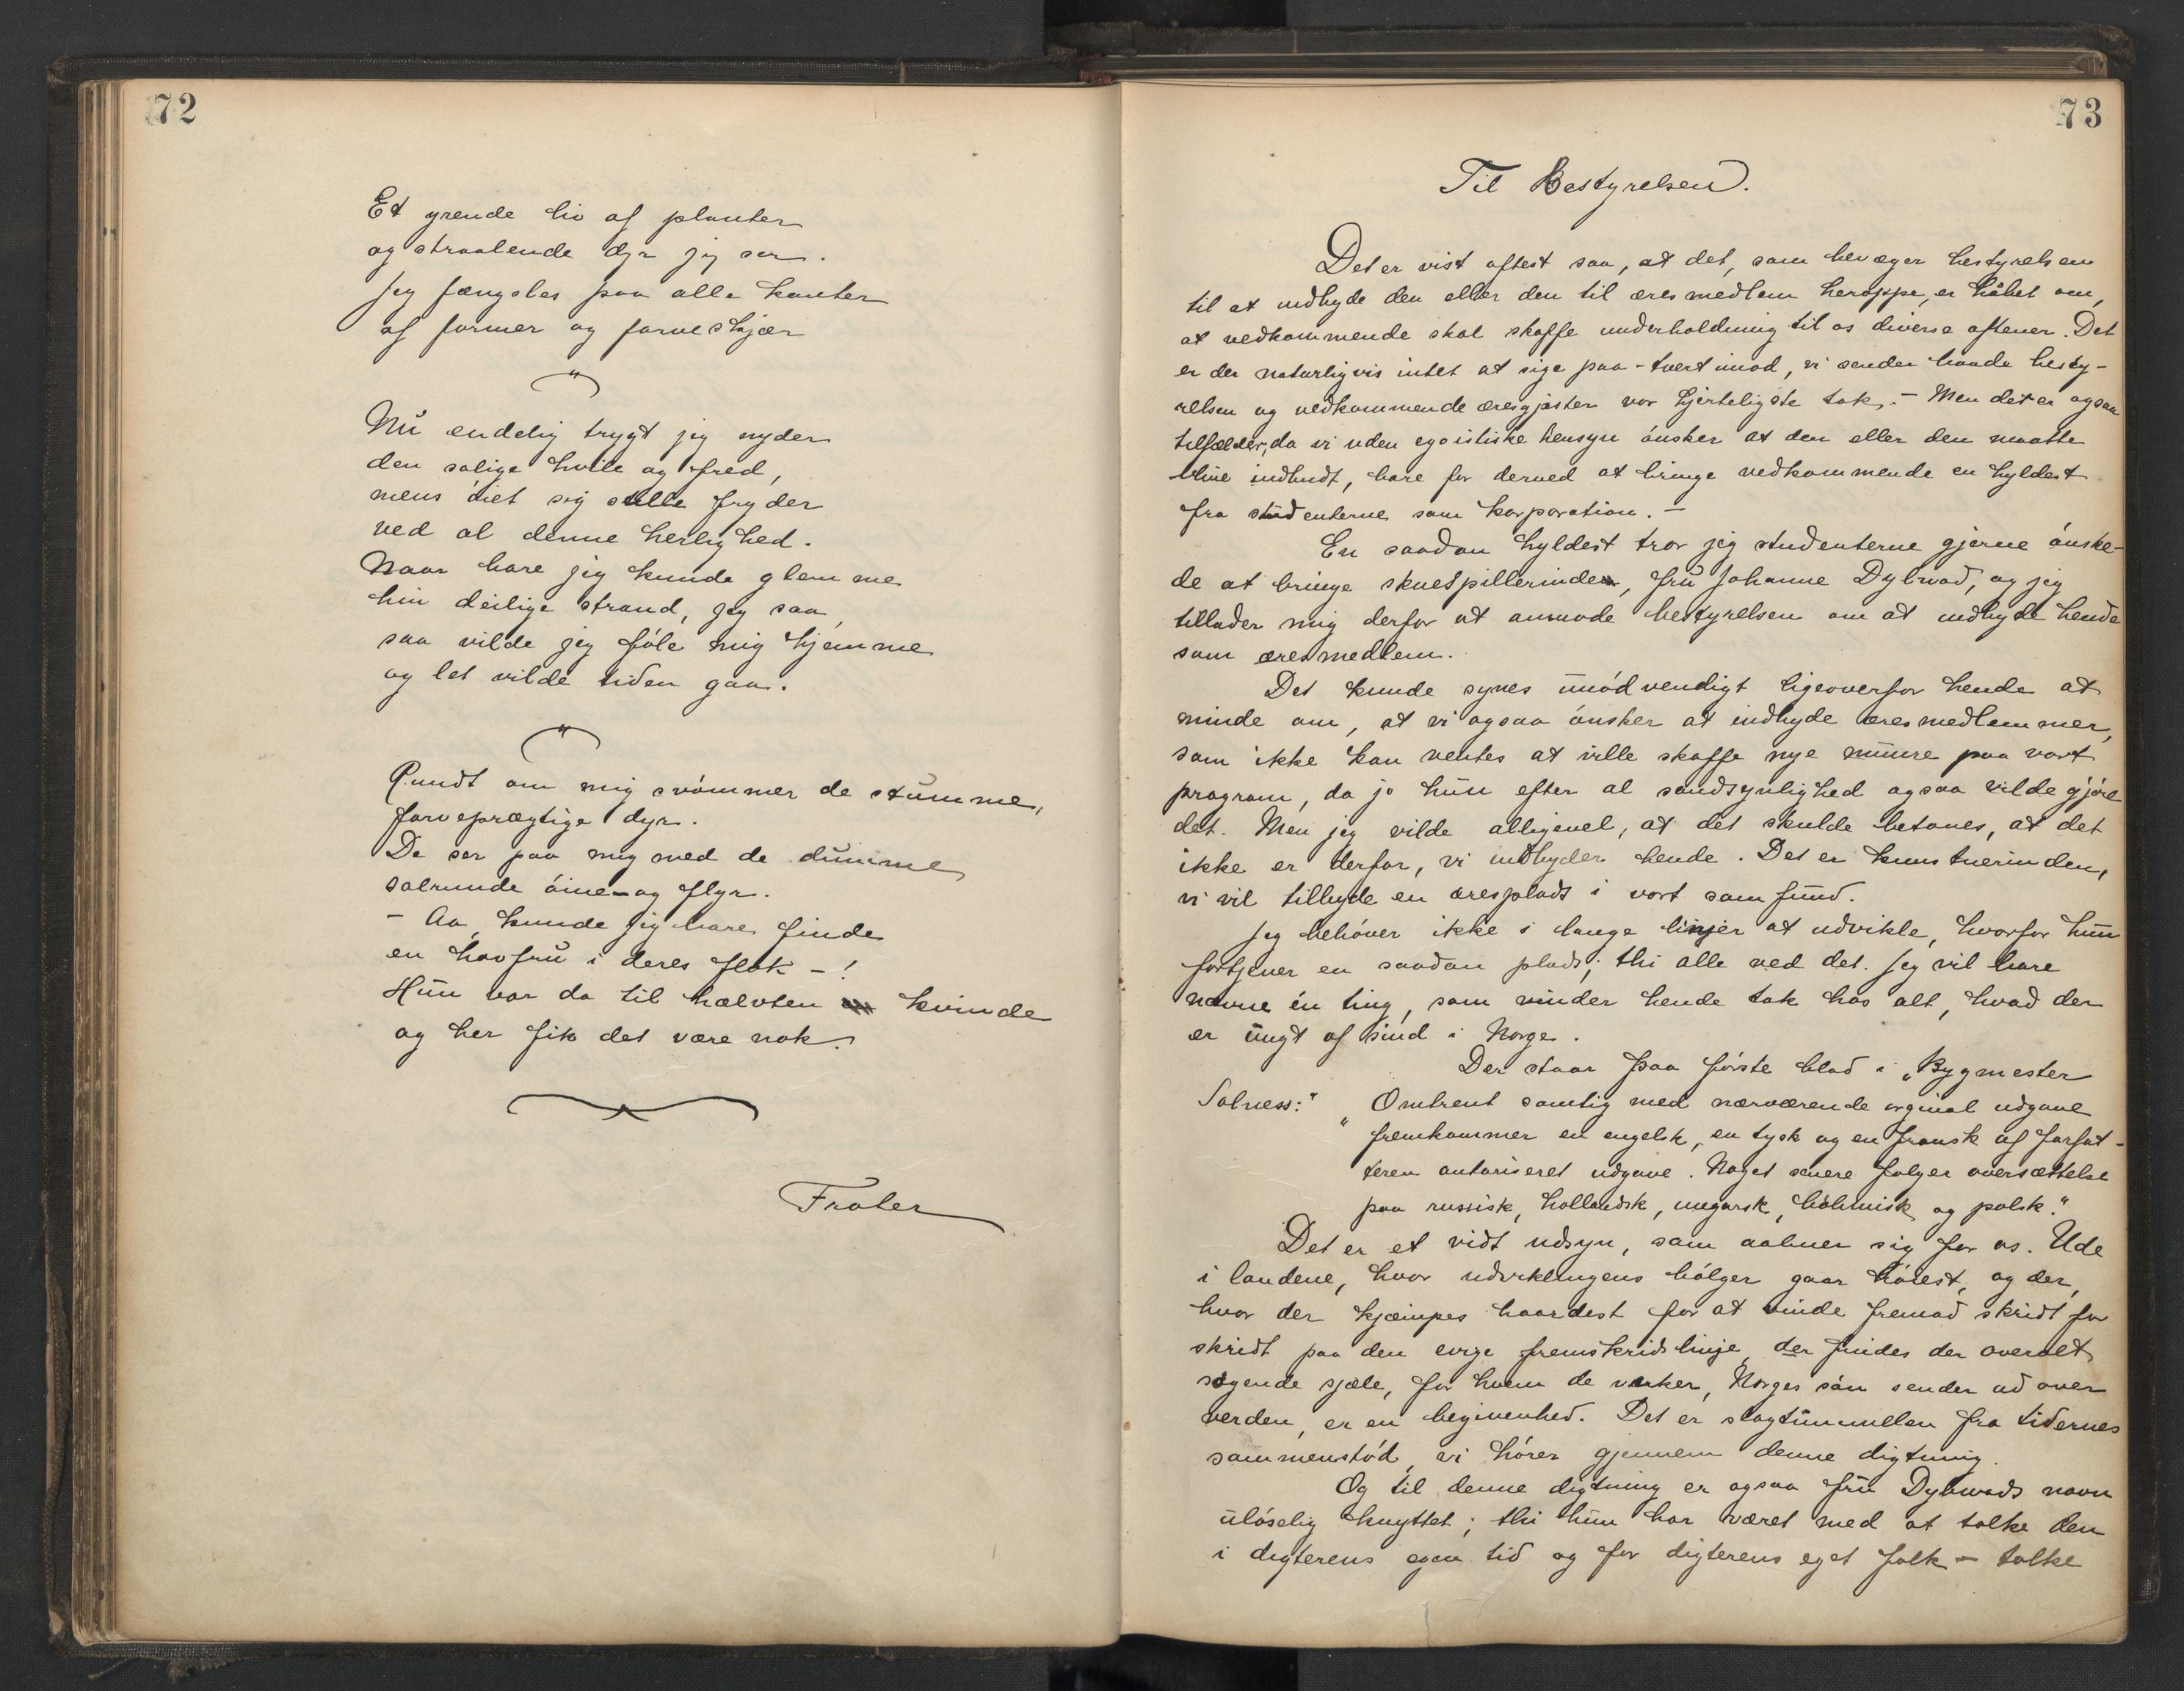 72
Et yrende liv af planter
og straalende dyr jeg ser.
Jeg fængsles paa alle kanter
af former og farveskjær
"
Nu endelig trygt jeg nyder
den salige hvile og fred,
mens óiet sig stille fryder
ved al denne herlighed.
Naar bare jeg kunde glemme
hin deilige strand, jeg saa,
saa vilde jeg fóle mig hjemme
og let vilde tiden gaa.
"
Rundt om mig svómmer de stumme,
farveprægtige dyr.
De ser paa mig med de dumme
solrunde óine – og flyr.
– Aa, kunde jeg bare finde
en havfru i deres flok – !
Hun var da til hælvten kvinde
og her fik det være nok.
Frater
73
Til Bestyrelsen.
Det er vist oftest saa, at det, som bevæger bestyrelsen
til at indbyde den eller den til æresmedlem heroppe, er håbet om,
at vedkommende skal skaffe underholdning til os diverse aftener. Det
er der naturligvis intet at sige paa – tvertimod, vi sender baade besty-
relsen og vedkommende æresgjæster vor hjerteligste tak. – Men det er ogsaa
tilfælder, da vi uden egoistiske hensyn ónsker at den eller den maatte
blive indbudt, bare for derved at bringe vedkommende en hyldest
fra studenterne som korporation. –
En saadan hyldest tror jeg studenterne gjerne ónske-
de at bringe skuespillerinden, fru Johanne Dybwad, og jeg
tillader mig derfor at anmode bestyrelsen om at indbyde hende
som æresmedlem.
Det kunde synes unódvendigt ligeoverfor hende at
minde om, at vi ogsaa ónsker at indbyde æresmedlemmer,
som ikke kan ventes at ville skaffe nye numre paa vort
program, da jo hun efter al sandsynlighed ogsaa vilde gjóre
det. Men jeg vilde alligevel, at det skulde betones, at det
ikke er derfor, vi indbyder hende. Det er kunstnerinden,
vi vil tilbyde en æresplads i vort samfund.
Jeg behóver ikke i lange linjer at udvikle, hvorfor hun
fortjener en saadan plads; thi alle ved det. Jeg vil bare
nævne én ting, som vinder hende tak hos alt, hvad der
er ungt af sind i Norge.
Der staar paa fórste blad i „Bygmester
Solness:" „Omtrent samtig med nærværende orginal udgave
„fremkommer en engelsk, en tysk og en fransk af forfat-
teren autoriseret udgave. Noget senere folger oversættelse
paa russisk, hollandsk, ungarsk, bóhmisk og polsk."
Det er et vidt udsyn, som aabner sig for os. Ude
i landene, hvor udviklingens bólger gaar hóiest, og der,
hvor der kjæmpes haardest for at vinde fremad skridt for
skridt paa den evige fremskridslinje, der findes der overalt
sogende sjæle, for hvem de verker, Norges són sender ud over
verden, er en begivenhed. Det er slagtummellen fra tidernes
sammenstód, vi hórer gjennem denne digtning.
Og til denne digtning er ogsaa fru Dybwads navn
ulóselig knyttet; thi hun har været med at tolke den
i digterens egen tid og for digterens eget folk – tolke